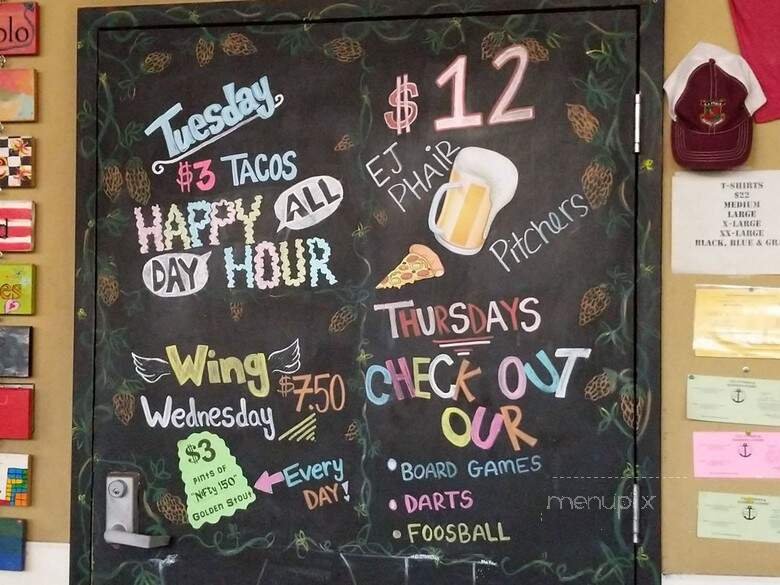 Tuesday
$3 TACOS
HAPPY ALL
DAY HOUR
Wing
Wednesday $7.50
$3
PINTS OF
"NIFTY 150"
GOLDEN STOUT
Every
DAY!
$12
EJ
PHAIR
Pitchers
THURSDAYS
CHECK OUT
OUR
• BOARD GAMES
• DARTS
• FOOSBALL
T-SHIRTS
$22
MEDIUM
LARGE
X-LARGE
XX-LARGE
BLACK, BLUE &
menupix